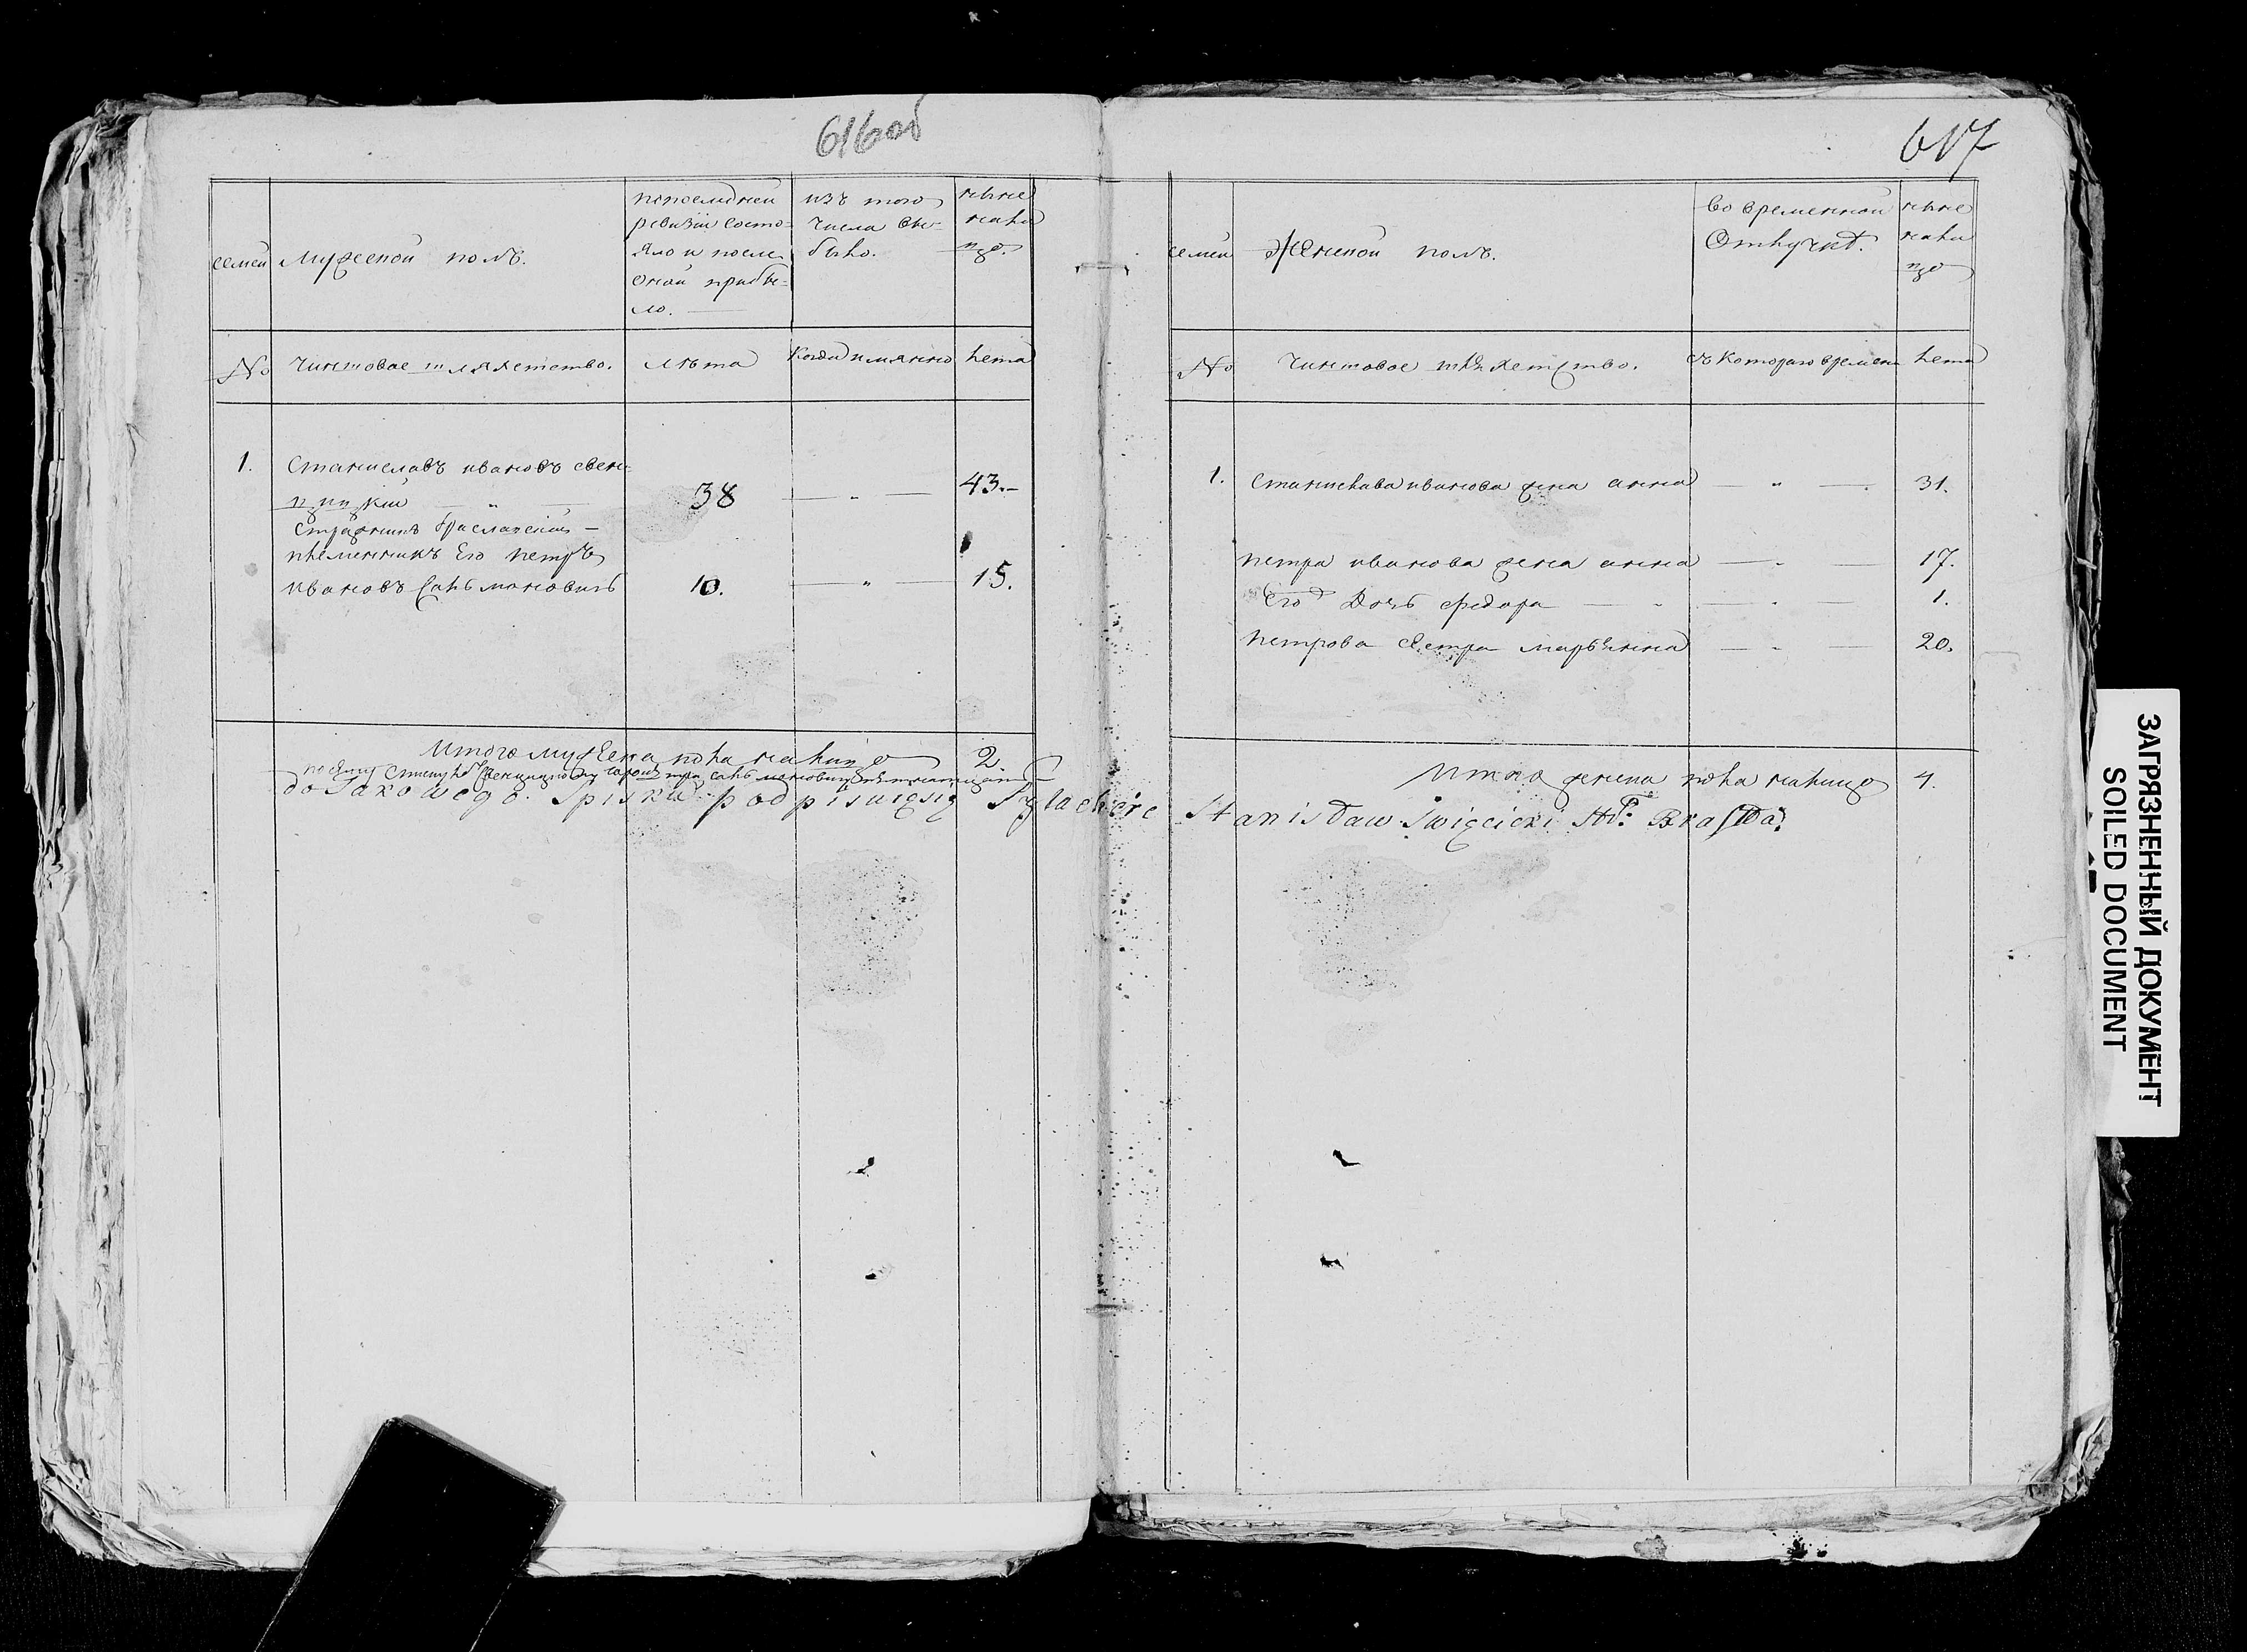 616об
617
семьи
мужеской полъ.
попоследней
ревизіи состо-
яло и после
оной прибы-
ло.
изъ того
числа вы-
было.
ныне
нали
цо.
No
чиншовое шляхетство.
лѣта
Когда имянно
лета
1.
Станиславъ ивановъ свен-
цицкій
38
43.
Стражникъ браславскій
племенникъ Его петръ
ивановъ
10.
15.
Итого мужеска пола налицо
2.
do Takowego Spisku podpisuięsię Szlachcic Stanisław Święcicki
семьи
Женской полъ.
во временной
Отлучкѣ.
ныне
нали
цо
No
чиншовое шляхетство.
съ Котораго времени
лета
1.
Станислава иванова жена анна
31.
петра иванова жена анна
17.
Его Дочь федора
1.
петрова сестра марьянна
20.
Итого женска пола налицо
4.
ЗАГРЯЗНЕННЫЙ ДОКУМЕНТ
SOILED DOCUMENT